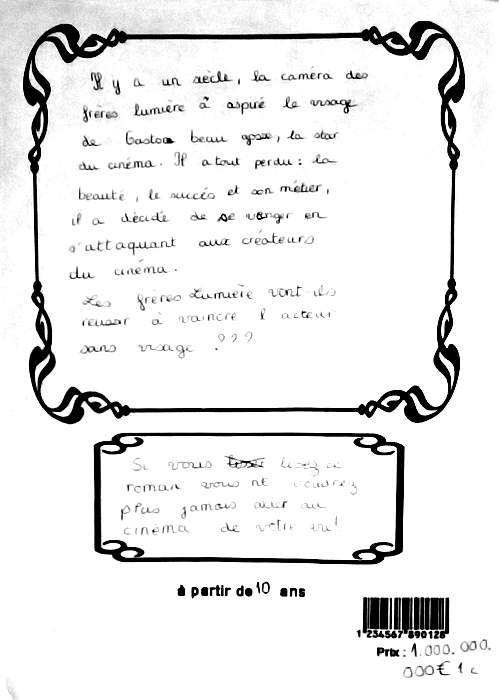 Il y a un siècle, la caméra des
frères lumière à aspiré le visage
de Gaston beau gosse, la star
du cinéma. Il a tout perdu : la
beauté, le succés et son métier,
il a décidé de se vanger en
s'attaquant aux créateurs
du cinéma.
Les frères Lumière vont-ils
reussir à vaincre l'acteur
sans visage ???
Si vous lisez ce
roman vous ne voudrez
plus jamais aller au
cinéma de votre vie!
à partir de 10 ans
1 234567 890128
Prix : 1.000.000.
000€ 1c